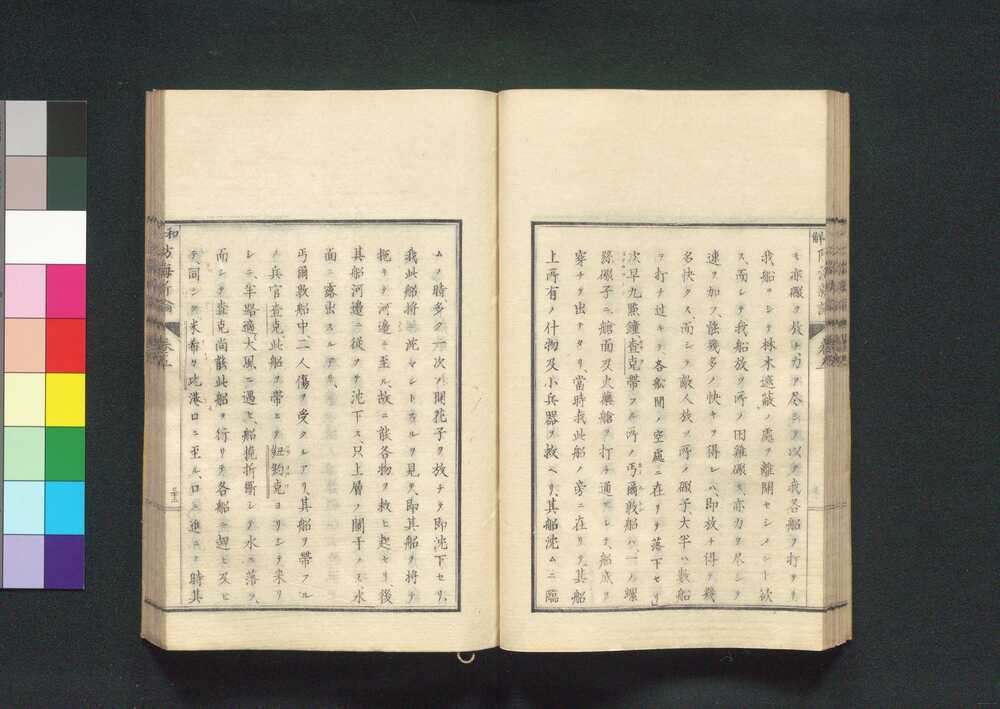 モ亦礮ヲ放チ力ヲ尽シ以テ我各船ヲ打チ、
我船ヲシテ林木遮蔽ノ處ヲ離開セシメント欲
ス、而シテ我船放ツ所ノ田雞礮モ亦力ヲ尽シテ
速ヲ加フ、能幾多ノ快キヲ得レハ、即放チ得テ幾
多快クス、而シテ敵人放ツ所ノ礮子、大半ハ数船
ヲ打チ過キテ、各船間ノ空處ニ在リテ落下セリ
次早九點鐘査克帶フル所ノ丐爾敦船ハ、一ノ螺
絲礮子ニ艙面及火藥艙ヲ打チ通サレテ、船底ヲ
穿チテ出テタリ、當時我此船ノ旁ニ在リテ、其船
上所有ノ什物及小兵器ヲ救ヘリ、其船沈ムニ臨
ムノ時多ク一次ノ開花子ヲ放チテ即沈下セリ、
我此船將ニ沈マントスルヲ見テ、即其船ヲ將テ
拖キテ河邊ニ至ル、故ニ能各物ヲ救ヒ起セリ、後
其船河邊ニ從ヲテ沈下ス、只上層ノ闌干ノミ水
面ニ露出スルアリ、
丐爾敦船中、二人傷ヲ受クルアリ、其船ヲ帶フル
ノ兵官査克此船ヲ帶ヒテ紐約克ヨリシテ來リ
シニ、半路適大風ニ遇ヒ、船桅折斷シテ水ニ落ツ、
而シテ査克尚能此船ヲ行リテ各船ニ趕ヒ及ヒ
テ同シク米希ㇾ比港口ニ至ル、口ニ進ムノ時其
和
防海新論
卷之